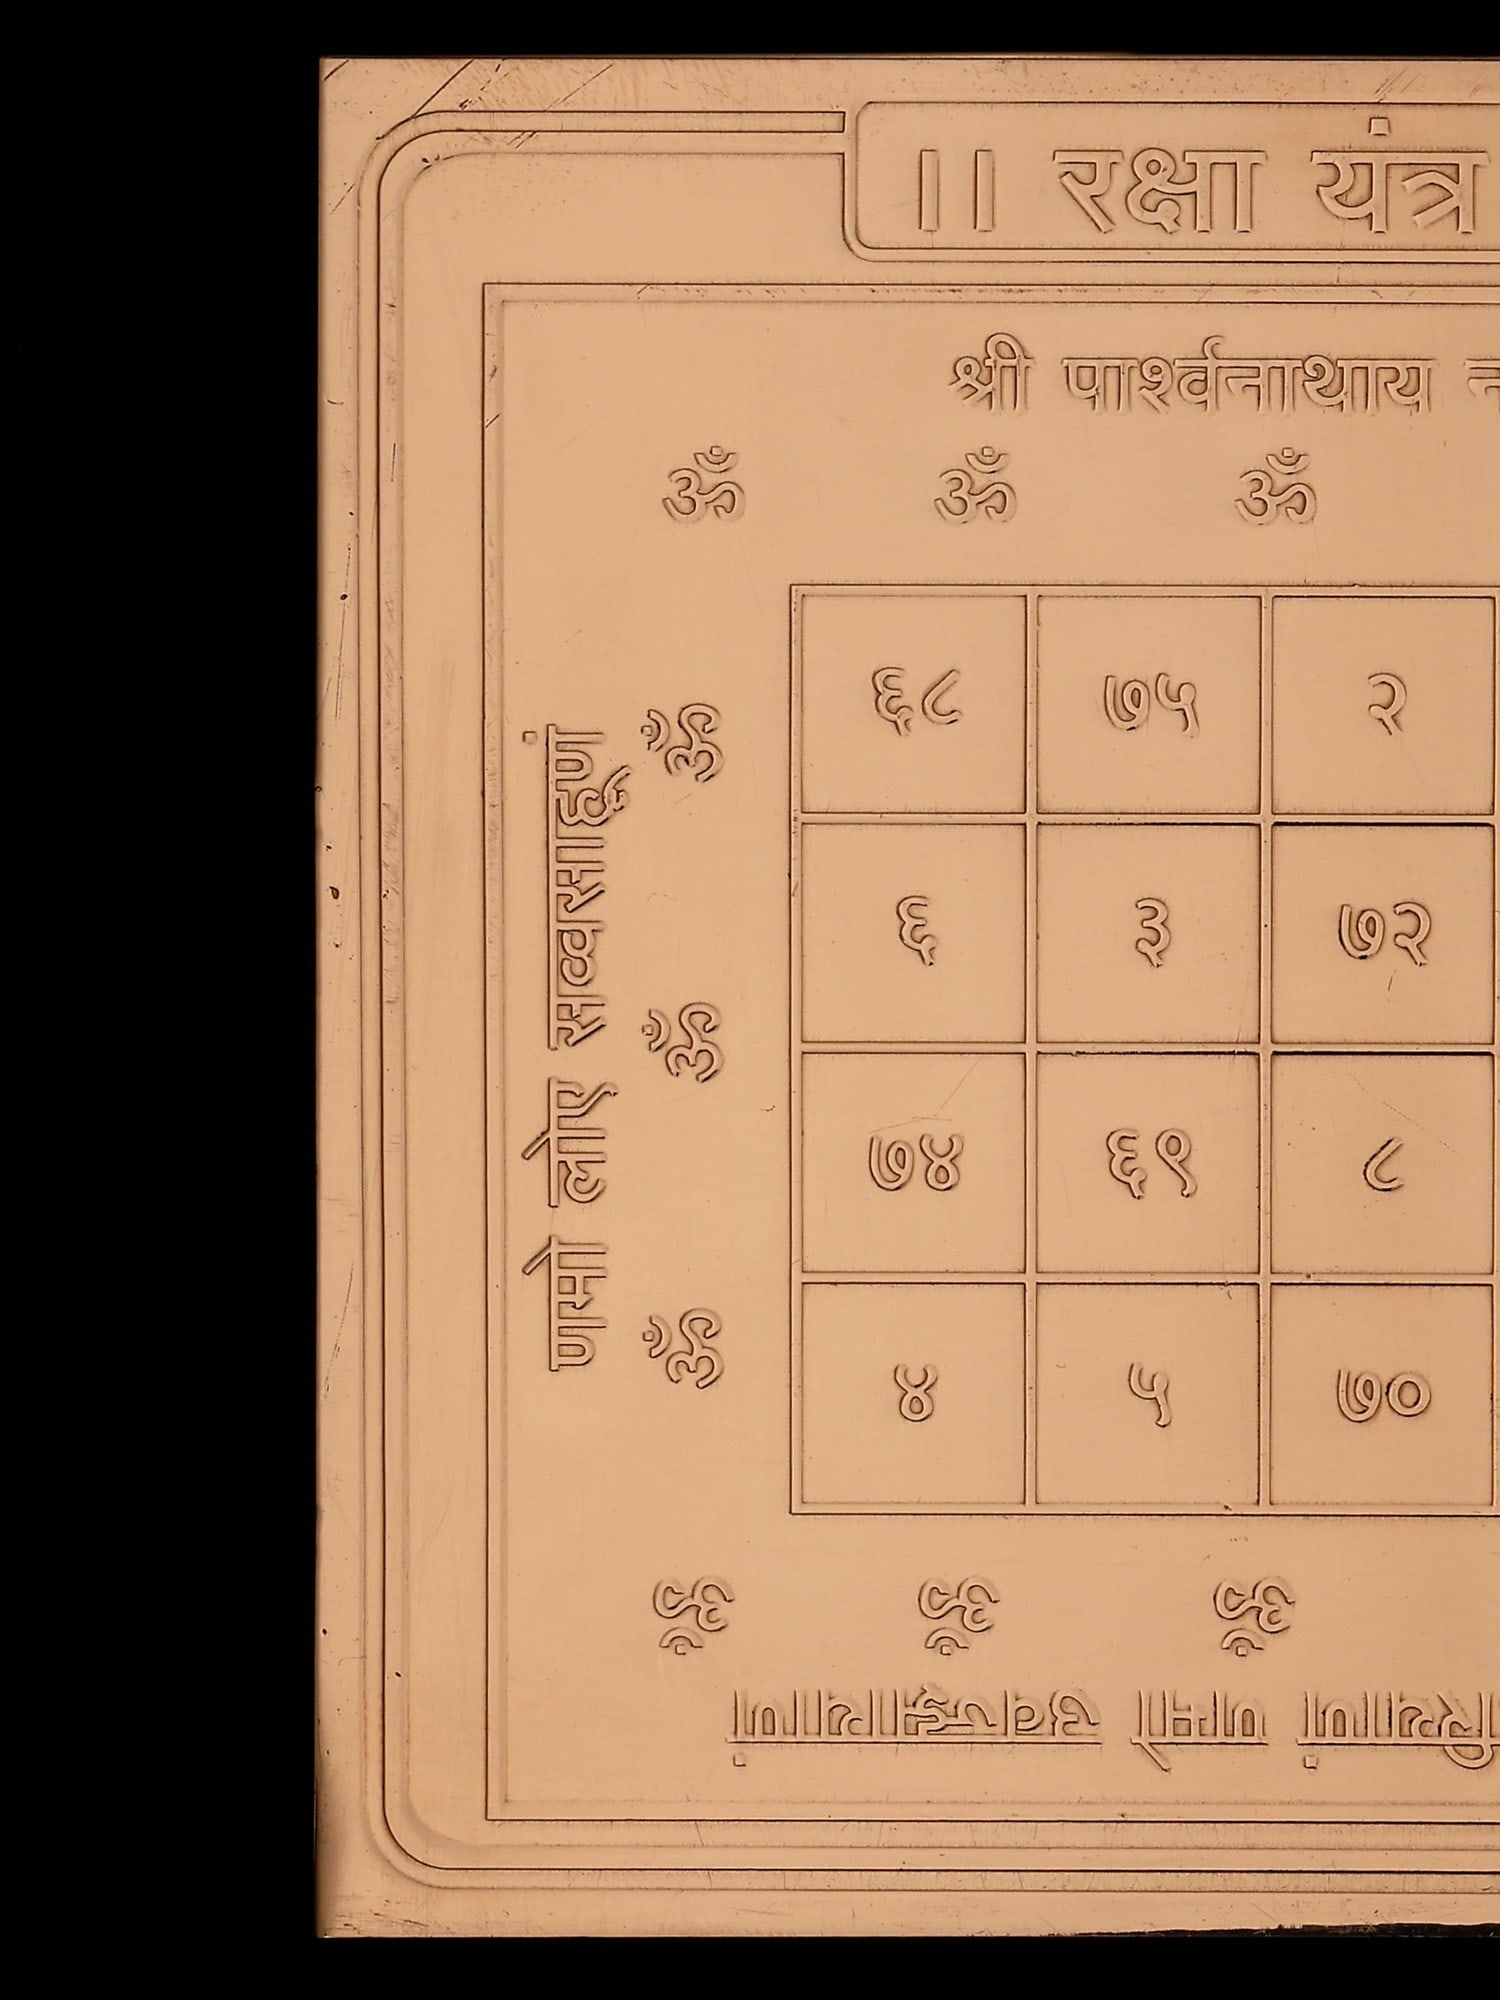 ।। रक्षा यंत्र
श्री पार्श्वनाथाय
ॐ ॐ ॐ
णमो लोए सव्वसाहूणं
ॐ ॐ ॐ
६८ ७५ २
६ ३ ७२
७४ ६९ ८
४ ५ ७०
ॐ ॐ ॐ
णमो उवज्झायाणं